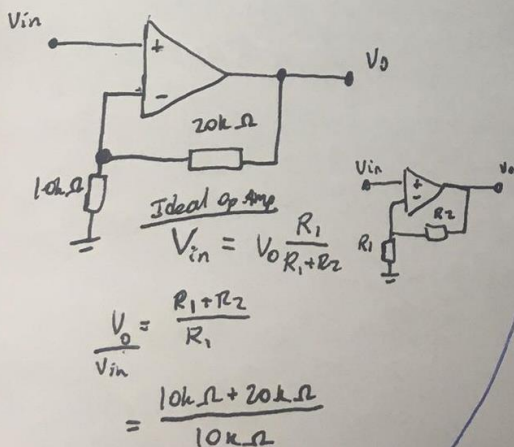 Vin
+
-
V0
20k Ω
10k Ω
Ideal Op Amp
Vin = V0 R1 / R1+R2
Vin
+
-
V0
R2
R1
V0 / Vin = R1+R2 / R1
= 10k Ω + 20k Ω / 10k Ω